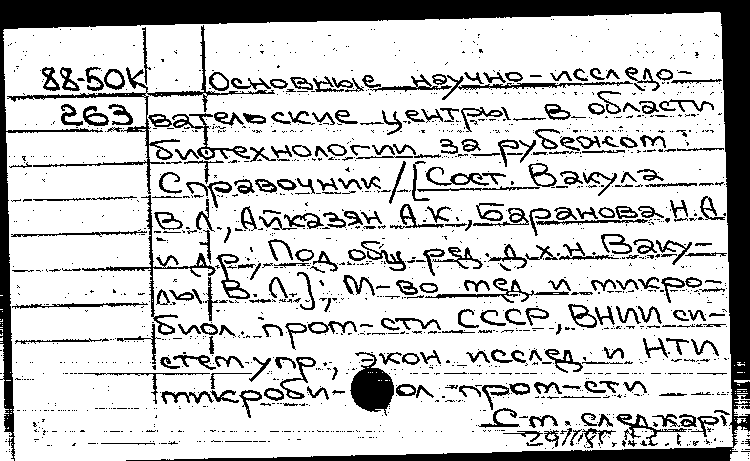 88-50К Основные научно-исследо-
263 вательские центры в области
биотехнологии за рубежом :
Справочник / [Сост. Вакула
В.Л., Айказян А.К., Баранова Н.А.
и др.; Под общ. ред. д.х.н. Ваку-
лы В.Л.]; М-во мед. и микро-
биол. пром-сти СССР, ВНИИ си-
стем упр., экон. исслед. и НТИ
микроби- ол. пром-сти
См. след. карт.